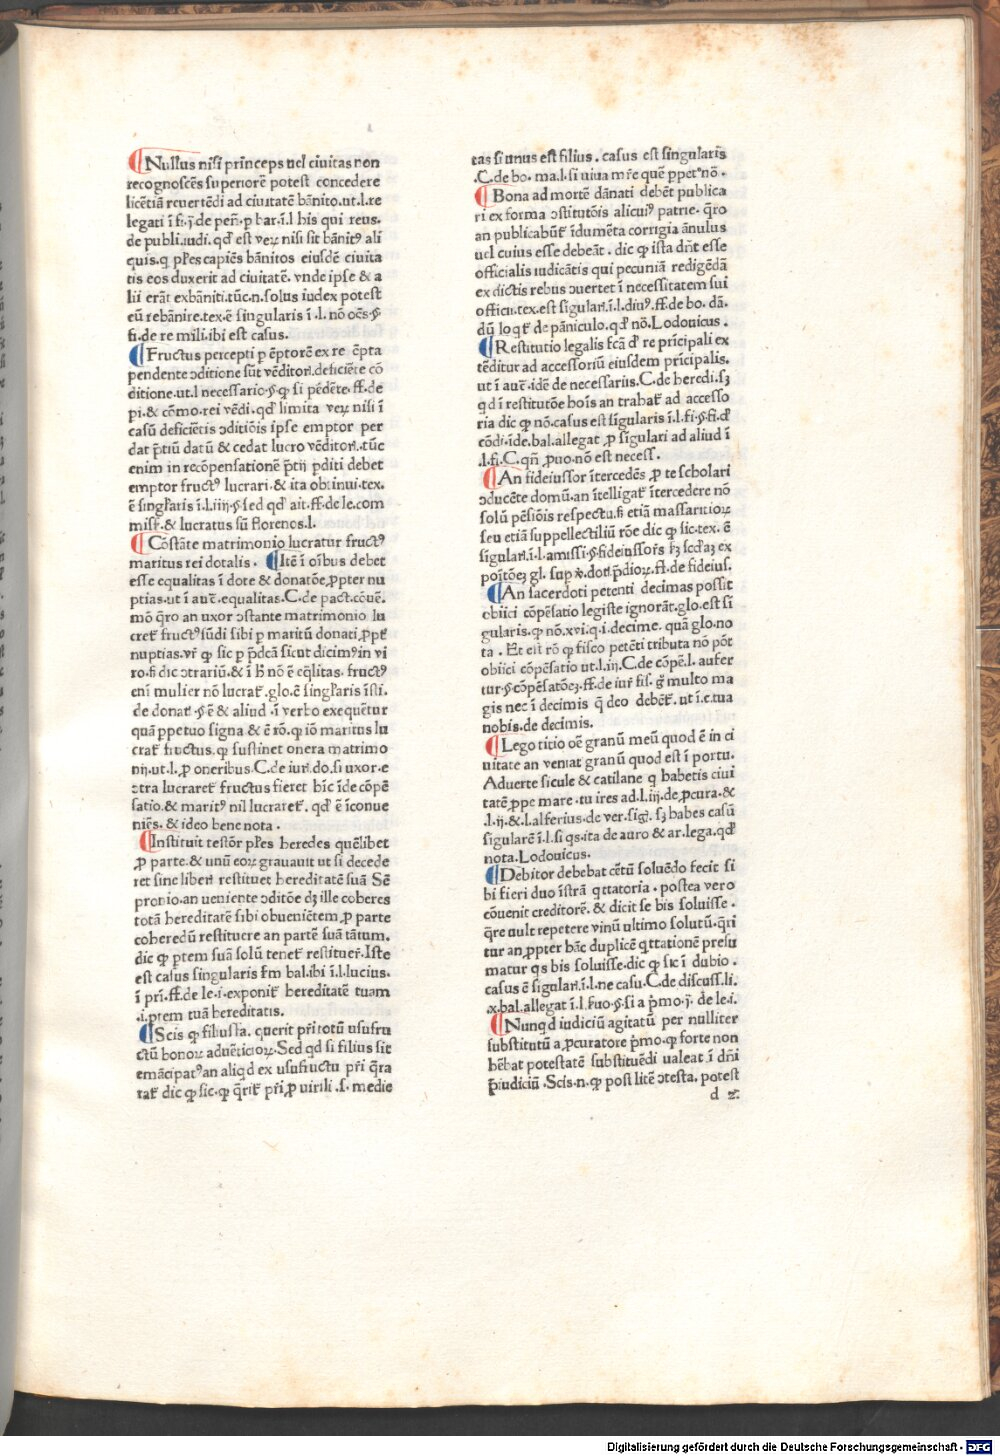 Nullus nisi princeps uel ciuitas non
recognoscēs superiorē potest concedere
licētiā reuertēdi ad ciuitatē bānito.ut.l.re
legati ī fi.j.de pen.p bar.ī.l his qui reus.
de publi.iudi.qd est veꝝ nisi sit bānitꝰ ali
quis.q pl̄es capiēs bānitos eiusdē ciuita
tis eos duxerit ad ciuitatē. vnde ipse & a
lii erāt exbāniti.tūc.n.solus iudex potest
eū rebānire.tex.ē singularis ī .l. nō oēs.§
fi.de re mili.ibi est casus.
Fructus percepti p ēptorē ex re ēpta
pendente ɔditione sūt vēditori.deficiēte cō
ditione.ut.l necessario.§.ꝙ si pēdēte.ff.de
pi.& cōmo.rei vēdi.qd limita veꝝ nisi ī
casū deficiētis ɔditiōis ipse emptor per
dat p̄tiū datū & cedat lucro vēditori.tūc
enim in recōpensationē p̄tij pditi debet
emptor fructꝰ lucrari.& ita obtinui.tex.
ē singl̓aris ī.l.iiij.§ sed qd ait.ff.de le.com
mis̄.& lucratus sū florenos.l.
Cōstāte matrimonio lucratur fructꝰ
maritus rei dotalis. Itē ī oībus debet
esse equalitas ī dote & donatōe,ꝓpter nu
ptias.ut ī auē.equalitas.C.de pact.cōuē.
mō q̄ro an uxor ɔstante matrimonio lu
cret̄ fructꝰ fūdi sibi p maritū donati,ꝓpt̄
nuptias.vr̄ ꝙ sic p p̄dcā sicut dicimꝰ in vi
ro.fi dic ɔtrariū.& ī ħ nō ē eq̄litas. fructꝰ
eni mulier nō lucrat̄.glo.ē singl̓aris īsti.
de donati.§ ē & aliud .ī verbo exequētur
quā ppetuo signa & ē rō.ꝙ iō maritus lu
crat̄ fructus.ꝙ sustinet onera matrimo
nij.ut.l.ꝓ oneribus.C.de iuri.do.si uxor.e
ɔtra lucraret̄ fructus fieret hīc īde cōpē
satio.& maritꝰ nil lucraret̄. qd ē īconue
niēs.& ideo bene nota.
Instituit testōr pl̄es heredes quēlibet
ꝓ parte.& unū eoꝝ grauauit ut si decede
ret sine liberi restituet hereditatē suā Sē
pronio.an ueniente ɔditōe dʒ ille coheres
totā hereditatē sibi obueniētem,ꝓ parte
coheredū restituere an partē suā tātum.
dic ꝙ ptem suā solū tenet̄ restituer̄.Iste
est casus singularis fm bal.ibi ī.l.lucius.
ī pri.ff.de le.i.exponit̄ hereditatē tuam
.i.ptem tuā hereditatis.
Scis ꝙ filiusfa. querit pri totū usufru
ctū bonoꝝ aduēticioꝝ.Sed qd si filius sit
emācipatꝰ an aliqd ex usufructu pri q̄ra
tat̄ dic ꝙ sic.ꝙ q̄rit̄ pri ꝓ uirili .s. medie
tas si unus est filius . casus est singularis
.C.de bo. ma.l.si uiua mr̄e quē ppetꝰnō .
Bona ad mortē dānati debēt publica
ri ex forma ɔstitutōis alicuiꝰ patrie. q̄ro
an publicabūt̄ īdumēta corrigia ānulus
uel cuius esse debeāt . dic ꝙ ista dn̄t esse
officialis iudicātis qui pecuniā redigēdā
ex dictis rebus ɔuertet ī necessitatem sui
officii.tex.est sīgulari.ī.l.diuꝰ.ff.de bo. dā.
dū loqt̄ de pāniculo.qd nō.Lodouicus .
Restitutio legalis fcā d̄ re prīcipali ex
tēditur ad accessoriū eiusdem prīcipalis.
ut ī auē.idē de necessariis.C.de heredi.sʒ
qd ī restitutōe boīs an trahat̄ ad accesso
ria dic ꝙ nō.casus est sīgularis ī.l.fi.§.fi.d̄
cōdi.ide.bal.allegat ꝓ singulari ad aliud ī
.l.fi.C.qn̄ ꝓuo.nō est necess̄.
An fideiussor ītercedēs ꝓ te scholari
ɔducēte domū.an ītelligat̄ ītercedere nō
solū pēsiōis respectu.fi etiā massaritioꝝ
seu etiā suppellectiliū rōe dic ꝙ sic.tex. ē
sigulari.ī.l.amissi.§.fideiussor̄s fʒ scd̄aʒ ex
poītōeʒ gl. sup x̄.doti.p̄dioꝝ.ff.de fideius.
An sacerdoti petenti decimas possit
obiici cōpēsatio legiste ignorāt.glo.est sī
gularis.ꝙ nō.xvi.q.i.decime. quā glo.no
ta . Et est rō ꝙ fisco petēti tributa nō pōt
obiici cōpēsatio ut.l.iij.C.de cōpē.l. aufer
tur.§ cōpēsatōeʒ.ff.de iur̄ fis. ḡ multo ma
gis nec ī decimis q̄ deo debēt̄. ut ī.c.tua
nobis.de decimis.
Lego titio oē granū meū quod ē in ci
uitate an veniat granū quod est ī portu.
Aduerte sicule & catilane q habetis ciui
tatē,ꝓpe mare . tu ires ad.l.iij.de,ꝓcura.&
.l.ij.&.l.alferius.de ver.sigī. sʒ habes casū
singularē ī.l.si qs.ita de auro & ar.lega.qd
nota.Lodouicus.
Debitor debebat cētū soluēdo fecit si
bi fieri duo īstrā qttatoria . postea vero
cōuenit creditorē. & dicit se bis soluisse .
q̄re uult repetere vinū ultimo solutū.q̄ri
tur an,ꝓpter hāc duplicē qttationē presu
matur qs bis soluisse.dic ꝙ sic ī dubio .
casus ē sīgulari.ī.l.ne casu.C.de discuss.li.
.x.bal.allegat ī.l.fuo.§.si a p̄mo.j. de le.i.
Nunqd iudiciū agitatū per nulliter
substitutū a,ꝓcuratore p̄mo.ꝙ forte non
hēbat potestatē substituēdi ualeat ī dn̄i
p̄iudiciū .Scis.n.ꝙ post litē ɔtesta. potest
d 2
Digitalisierung gefördert durch die Deutsche Forschungsgemeinschaft - DFG